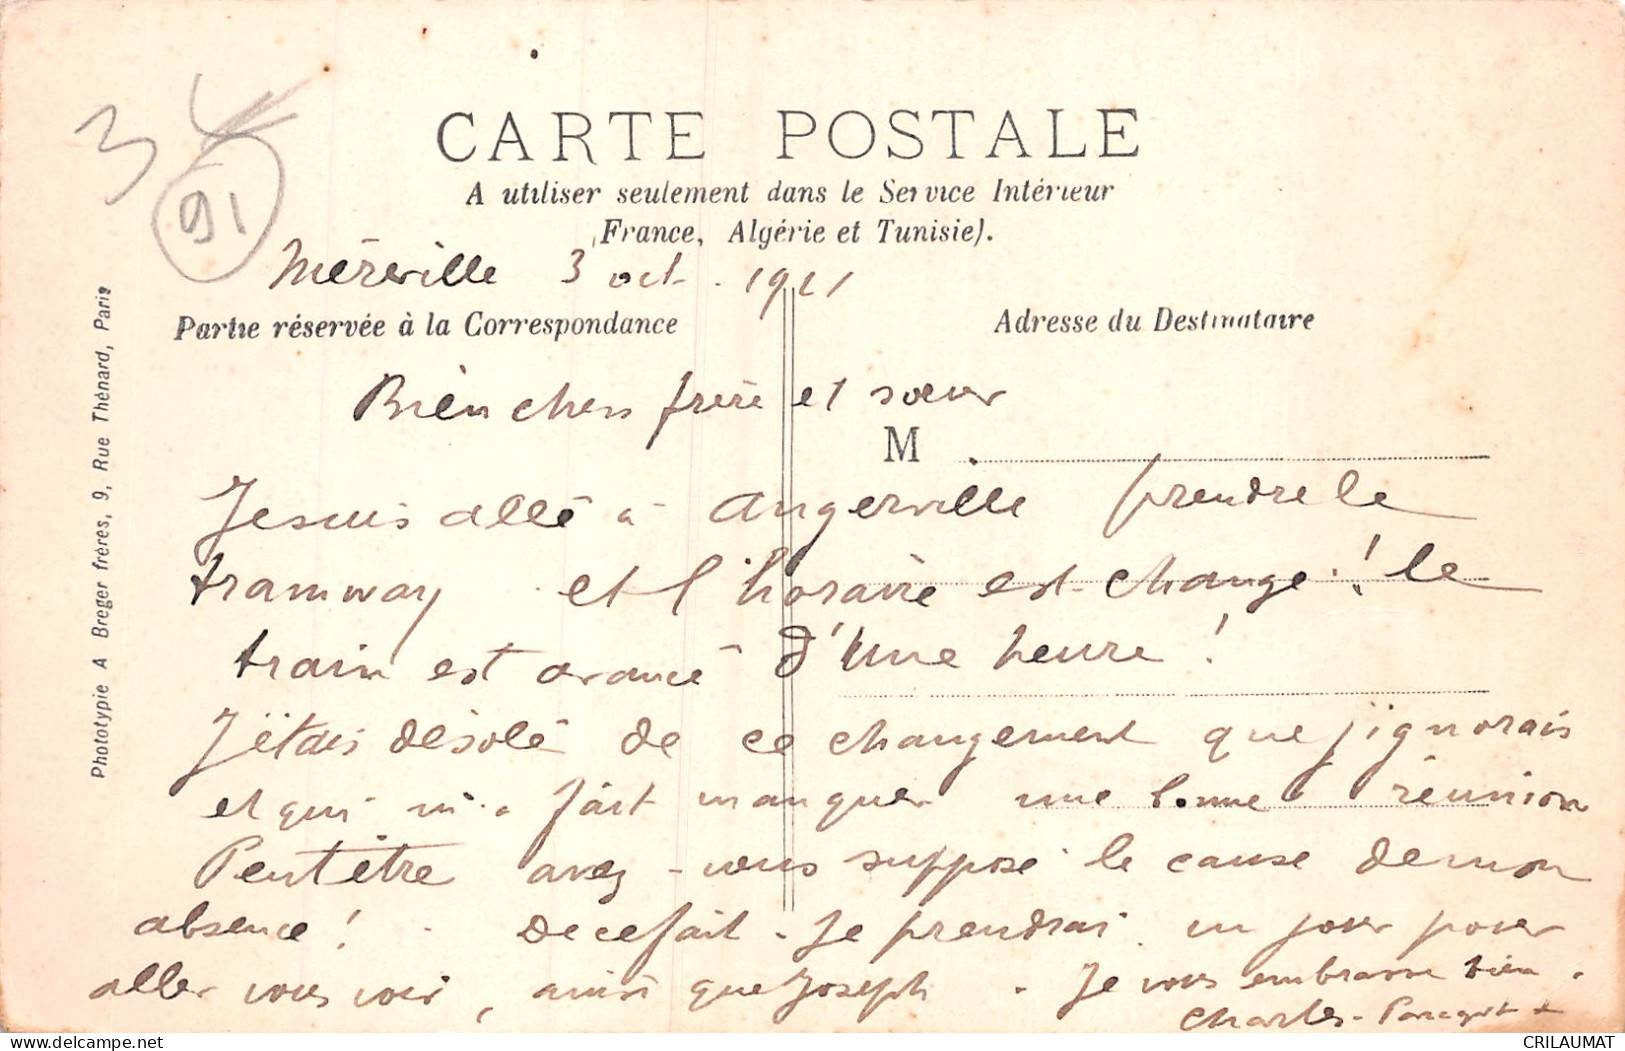 3
91
CARTE POSTALE
A utiliser seulement dans le Service Intérieur
(France, Algérie et Tunisie).
Méréville 3 oct. 1911
Partie réservée à la Correspondance
Adresse du Destinataire
Bien chers frère et sœur
M
Je suis allé à Angerville prendre le
tramway et l'horaire est changé ! le
train est avancé d'une heure !
J'étais désolé de ce changement que j'ignorais
et qui m'a fait manquer une bonne réunion
Peut être avez-vous supposé la cause de mon
absence ! De ce fait. Je prendrai un jour pour
aller vous voir, ainsi que Joseph. Je vous embrasse bien.
Charles
Phototypie A Breger frères, 9, Rue Thénard, Paris
CRILAUMAT